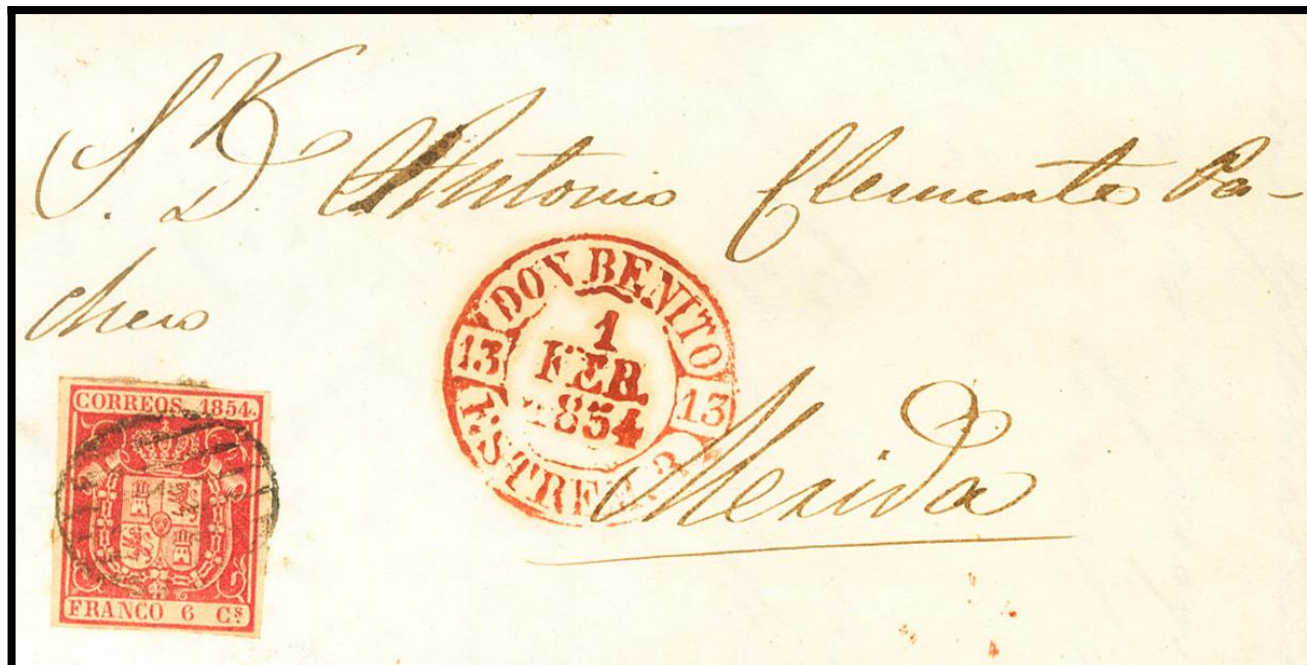 S. D. Antonio Clemente Pa-
checo
DON BENITO
1
FEB.
1854
13 13
ESTREM.
Merida
CORREOS 1854.
FRANCO 6 Cs